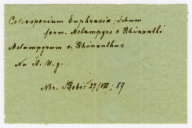 Coleosporium Euphrasiae, Schum
form. Melampyri & Rhinanthi
Melampyrum & Rhinanthus
No. A. U. g.
27/VIII. 89